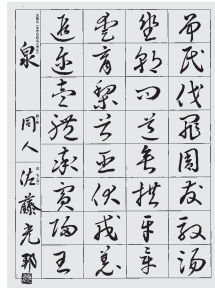 弔民伐罪周發殷湯
坐朝問道垂拱平章
愛育黎首臣伏戎羌
遐邇壹體率賓歸王
泉 同人 佐藤光邦